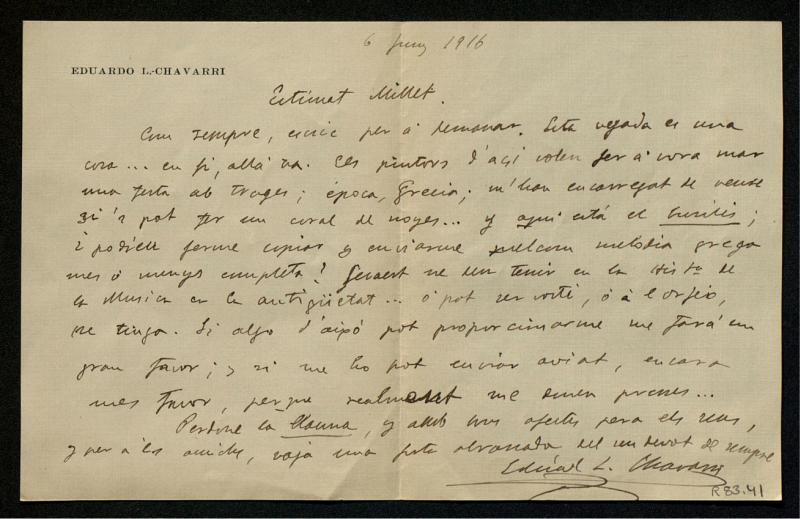 6 juny 1916
EDUARDO L.-CHAVARRI
Estimat Millet.
Com sempre, escric per á demanar. Esta vegada es una
cosa... en fi, allá va. Els pintors d'açi volen fer á vora mar
una festa ab trages; época, Grecia; m'han encarregat de veure
si's pot fer un coral de noyes... y aqui está el busilis;
¿podríeu ferme copiar y enviarme melodía grega
mes ó menys completa? Gevaert ne deu tenir en la Histª de
la Musica en la antigüetat... ó pot ser vosté, ó á l'Orfeó,
ne tinga. Si algo d'aixó pot proporcionarme me fará un
gran favor; y si me ho pot enviar aviat, encara
mes favor, perque realment me donen presses...
Perdone la llauna, y amb mos afectes pera els seus,
y per á els amichs, vaja una forta abrassada del seu devot de sempre
Eduard L. Chavarri
R 83.41